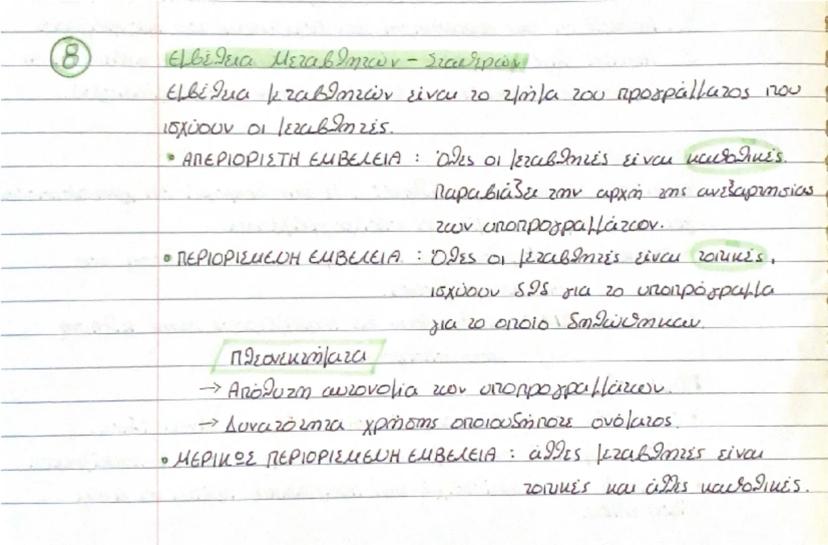 8 Εμβέλεια Μεταβλητών - Σταθερών
Εμβέλεια μεταβλητών είναι το τμήμα του προγράμματος που
ισχύουν οι μεταβλητές.
• ΑΠΕΡΙΟΡΙΣΤΗ ΕΜΒΕΛΕΙΑ : Όλες οι μεταβλητές είναι καθολικές.
Παραβιάζει την αρχή της ανεξαρτησίας
των υποπρογραμμάτων.
• ΠΕΡΙΟΡΙΣΜΕΝΗ ΕΜΒΕΛΕΙΑ : Όλες οι μεταβλητές είναι τοπικές,
ισχύουν δλδ για το υποπρόγραμμα
για το οποίο δηλώθηκαν.
Πλεονεκτήματα
→ Απόλυτη αυτονομία των υποπρογραμμάτων.
→ Δυνατότητα χρήσης οποιουδήποτε ονόματος.
• ΜΕΡΙΚΩΣ ΠΕΡΙΟΡΙΣΜΕΝΗ ΕΜΒΕΛΕΙΑ : άλλες μεταβλητές είναι
τοπικές και άλλες καθολικές.